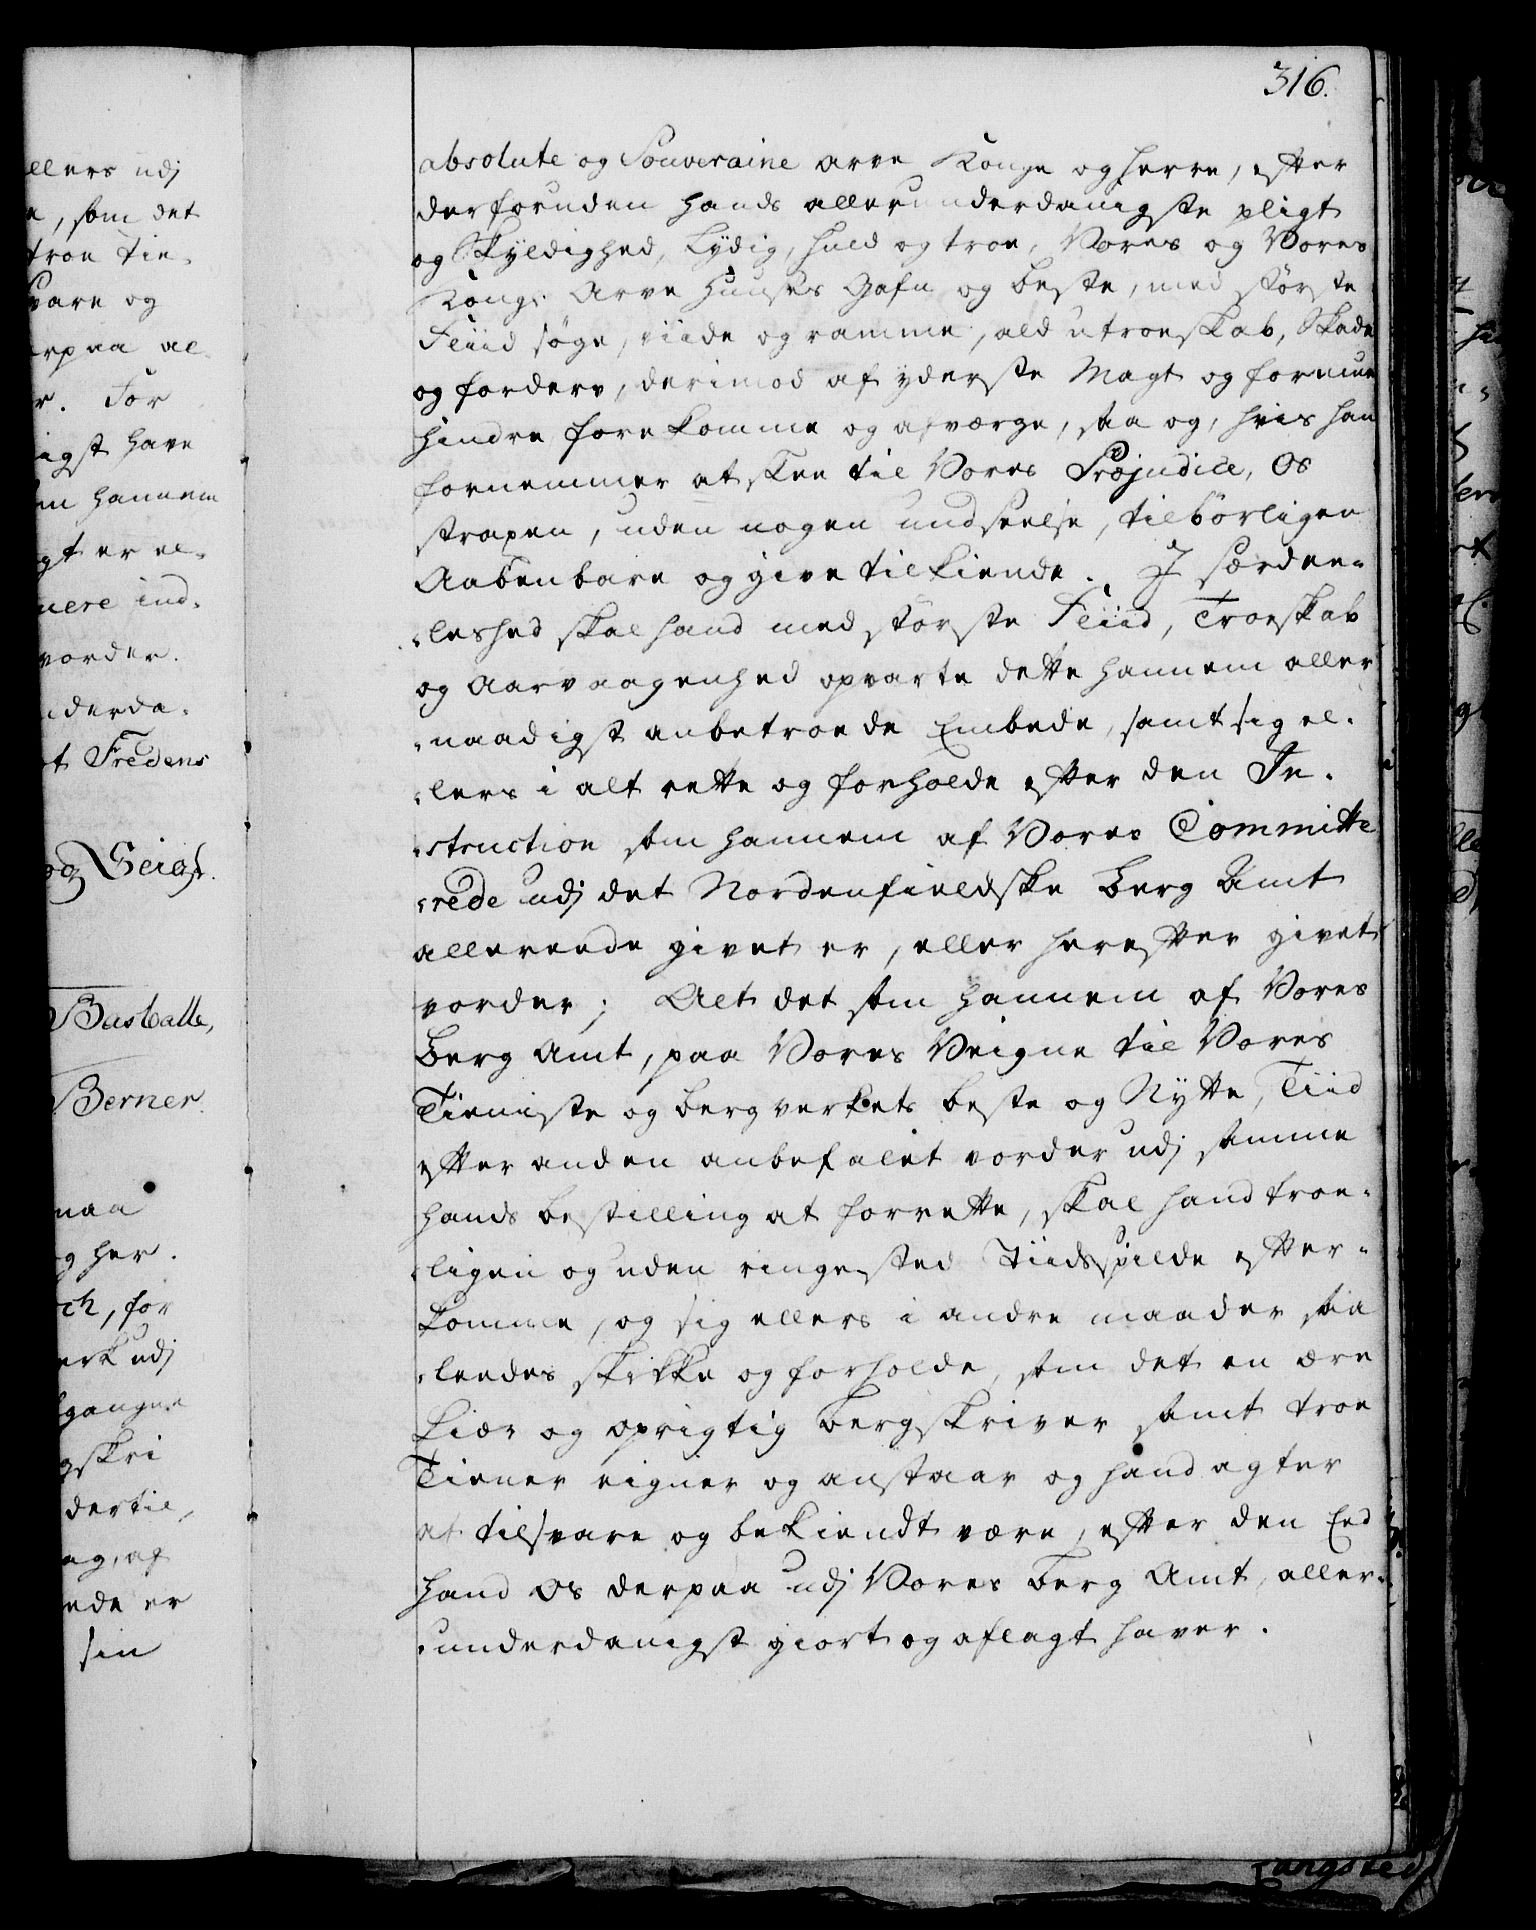 316.
absolute og Souveraine arve Konge og Herre, efter
derforuden hands allerunderdanigste pligt
og Skyldighed, Lydig, huld og troe, Vores og Vores
Kongl. Arve Huuses Gafn og beste, med störste
Fliid söge, viide og ramme, ald utroeskab, Skade
og forderv, derimod af yderste Magt og formue
hindre forekomme og afværge, saa og, hvis han
fornemmer at skee til Vores Præjudice, Os
straxen, uden nogen undseelse, tilbörligen
Aabenbare og give tilkiende. I særdee-
-leshed skal hand med störste Fliid, Troeskab
og Aarvaagenhed opvarte dette hannem aller
-naadigst anbetroede Embede, samt sig el-
-lers i alt rette og forholde efter den In-
-struction som hannem af Vores Committe
-rede udj det Nordenfieldske Berg Amt
allereede givet er, eller herefter givet
vorder; Alt det som hannem af Vores
Berg Amt, paa Vores Veigne til Vores
Tieniste og bergverkets beste og Nytte, Tiid
efter anden anbefalet vorder udj samme
hands bestilling at forrette, skal hand troe-
-ligen og uden ringested Tiidsspilde efter-
komme, og sig ellers i andre maader saa
-leedes skikke og forholde, som det en ære
kiær og oprigtig bergskriver samt troe
Tiener eigner og anstaar og hand agter
at tilsvare og bekiendt være, efter den Eed
hand Os derpaa udj Vores Berg Amt, aller-
-underdanigst giort og aflagt haver.
ellers udj
, som det
troe tie-
vare og
erpaa al-
r. For
igst have
hannem
gt er el-
mere ind-
vorder.
nderda-
Fredens
og Seigl.
Bastballe,
Berner.
maa
og her-
ch, for
erk udj
gangne
gskri
dertil,
ag, af
ede er
sin